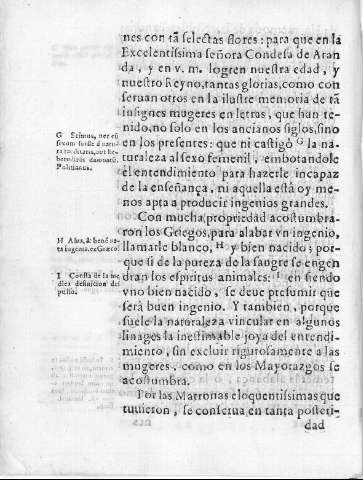 nes con tã selectas flores: para que en la
Excelentissima señora Condesa de Aran
da, y en v. m. logren nuestra edad, y
nuestro Reyno, tantas glorias, como con
seruan otros en la ilustre memoria de tã
insignes mugeres en letras, que han te-
nido, no solo en los ancianos siglos, sino
en los presentes: que ni castigó G la na-
turaleza al sexo femenil, embotandole
el entendimiento para hazerle incapaz
de la enseñança, ni aquella està oy me-
nos apta a producir ingenios grandes.
Con mucha propriedad acostumbra-
ron los Griegos, para alabar vn ingenio,
llamarle blanco, H y bien nacido; por-
que si de la pureza de la sangre se engen
dran los espiritus animales: I en siendo
vno bien nacido, se deue presumir que
serà buen ingenio. Y tambien, porque
suele la naturaleza vincular en algunos
linages la inestimable joya del entendi-
miento, sin excluir rigurosamente a las
mugeres, como en los Mayorazgos se
acostumbra.
Por las Matronas eloquentissimas que
tuuieron, se conserua en tanta posteri-
dad
G Scimus, nec
sexum
Politianus.
H Alua, &
ingenia, ex Græco
I Consta de la me
dica definicion del
pulso.